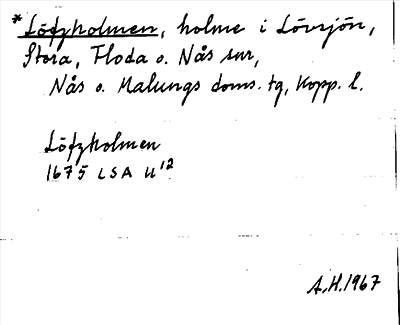 *Löfzholmen, holme i Lövsjön,
Stora, Floda o. Nås snr,
Nås o. Malungs doms. tg, Kopp. l.
Löfzholmen
1675 LSA U 12
A.H. 1967